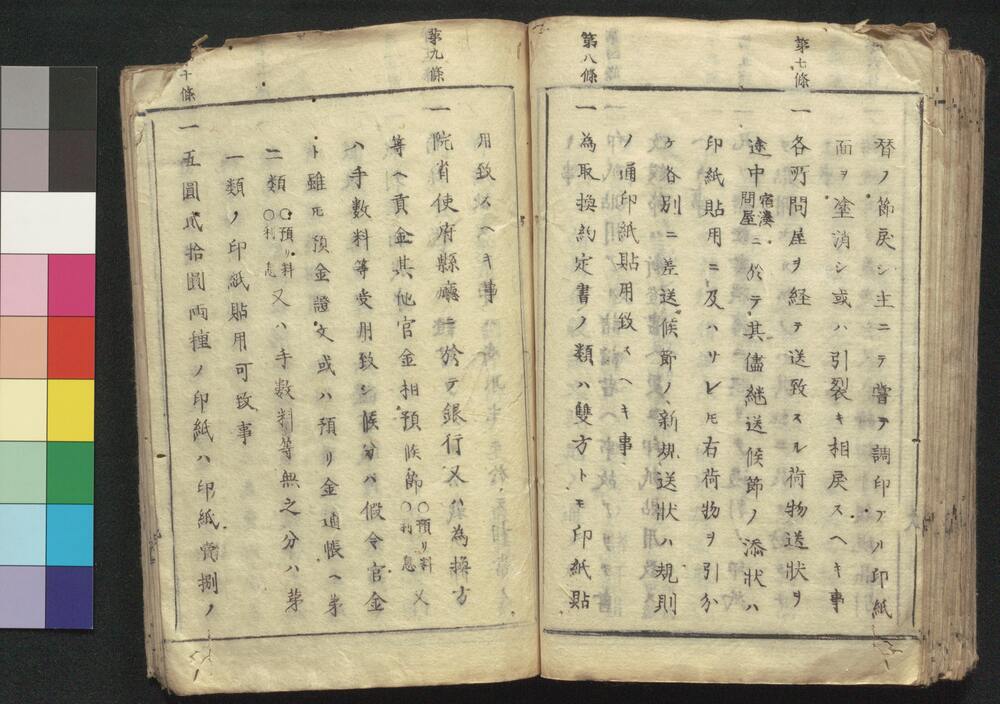 替ノ節戻シ主ニテ嘗テ調印アル印紙
面ヲ塗消シ或ハ引裂キ相戻スヘキ事
第七條
一 各所問屋ヲ経テ送致スル荷物送状ヲ
途中宿湊問屋ニ於テ其儘継送候節ノ添状ハ
印紙貼用ニ及ハサレ𪜈右荷物ヲ引分
ケ格別ニ差送候節ノ新規送状ハ規則
ノ通印紙貼用致スヘキ事
第八條
一 為取換約定書ノ類ハ雙方トモ印紙貼
用致スヘキ事
第九條
一 院省使府縣廳ニ於テ銀行又ハ為換方
等ヘ貢金其他官金相預候節○預リ料○利息又
ハ手数料等受用致シ候分ハ假令官金
ト雖𪜈預金證文或ハ預リ金通帳ヘ第
二類○預リ料○利息又ハ手数料等無之分ハ第
一類ノ印紙貼用可致事
十條
一 五圓貳拾圓両種ノ印紙ハ印紙賣捌ノ